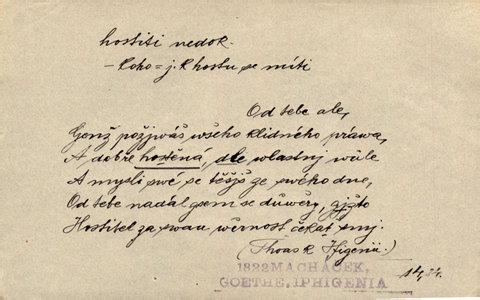 hostiti nedok.
– koho = j. k hostu se míti
Od tebe ale,
Genž požjwáš wšeho klidného práwa,
A dobře hostěná, dle wlastnj wůle
A mysli swé se těšjš ze swého dne,
Od tebe nadál gsem se důwěry, gjžto
Hostitel za swau wěrnost čekat smj.
(Thoas k Ifigenii)
1822 MACHÁČEK,
GOETHE, IPHIGENIA